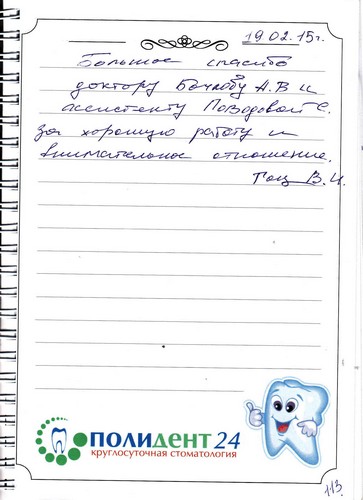 19.02.15г.
Большое спасибо
доктору Бочкову А.В и
ассистенту Поводовой С.
за хорошую работу и
внимательное отношение.
Гац В.И.
ПОЛИДЕНТ 24
круглосуточная стоматология
113